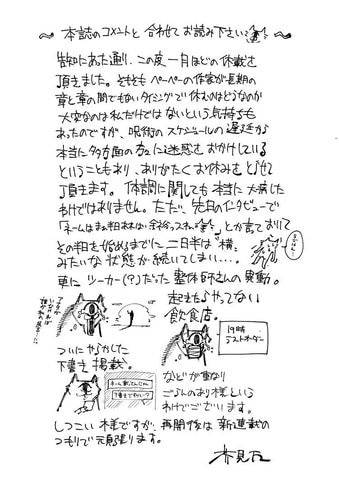 本誌のコメントと合わせてお読み下さい
告知にあった通り、この度一月ほどの休載を
頂きました。そもそもペーペーの作家が長期の
章と章の間でもないタイミングで休むのはどうなのか
大変なのは私だけではないという気持ちも
あったのですが、呪術のスケジュールの遅延が
本当に多方面の方々に迷惑をおかけしている
ということもあり、ありがたくお休みをとらせて
頂きます。体調に関しても本当に大病した
わけではありません。ただ、先日のインタビューで
「ネームはまぁ1日あれば余裕っスね」とか言ておいて
その1日を始めるまでに二日半は“横”
みたいな状態が続いてしまい…、
更にツーカー(?)だった整体師さんの異動。
起きたらやってない
飲食店。
19時
ラストオーダー
ついにやらかした
下書き掲載。
などが重なり
ごらんのあり様という
わけでございます。
しつこい様ですが、再開後は新連載の
つもりで頑張ります。
芥見下々